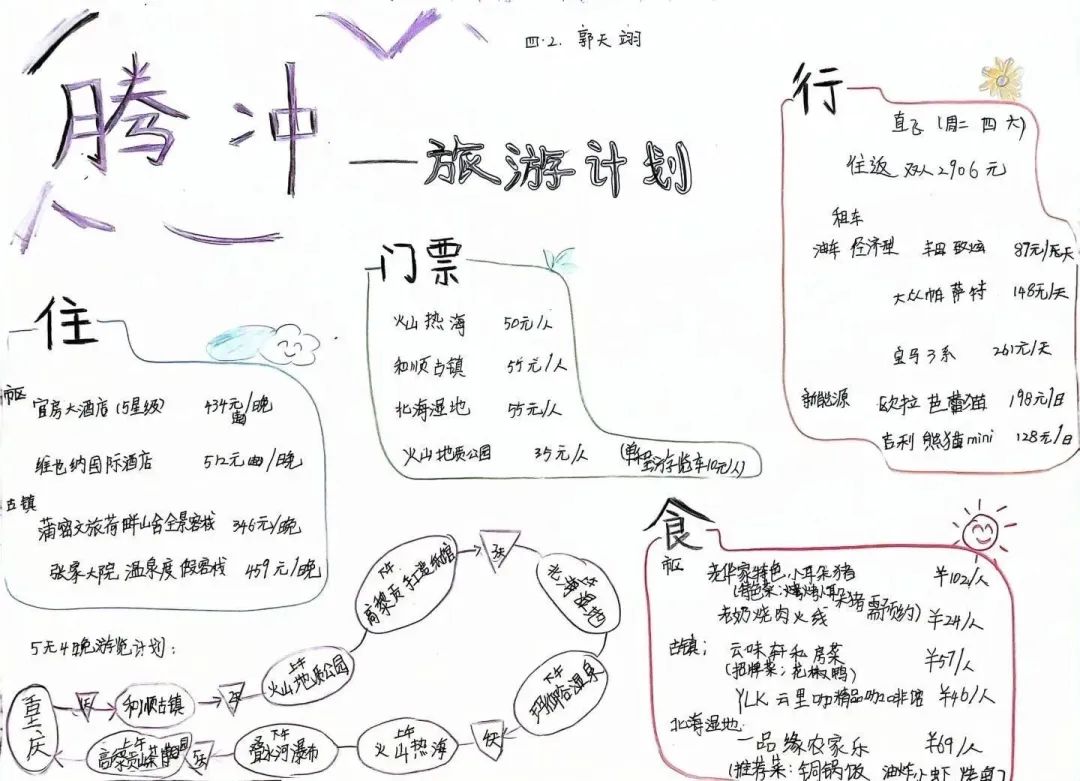 四.2. 郭天翊
腾冲
—旅游计划
行
直飞(周二 四 六)
往返 双人2906元
租车
油车 经济型 丰田 致炫 87元/天
大众帕萨特 148元/天
宝马3系 261元/天
新能源 欧拉 芭蕾猫 198元/日
吉利 熊猫mini 128元/日
门票
火山热海 50元/人
和顺古镇 55元/人
北海湿地 55元/人
火山地质公园 35元/人 (单程游览车10元/人)
住
市区
官房大酒店(5星级) 434元/晚
维也纳国际酒店 512元/晚
古镇
蒲窑文旅荷畔山舍全景客栈 346元/晚
张家大院 温泉度假客栈 459元/晚
食
市区
老华家特色小耳朵猪 ¥102/人
老奶烧肉火线 ¥24/人
古镇:
云味轩私房菜 ¥57/人
(招牌菜:花椒鸭)
YLK 云里咖精品咖啡馆 ¥46/人
北海湿地:
一品缘农家乐 ¥69/人
(推荐菜:铜锅饭 油炸小虾
5天4晚游览计划:
重庆
和顺古镇
上午
火山地质公园
下午
高黎贡手工造纸馆
3天
上午
北海湿地
下午
玛御谷温泉
上午
火山热海
下午
叠水河瀑布
5天
上午